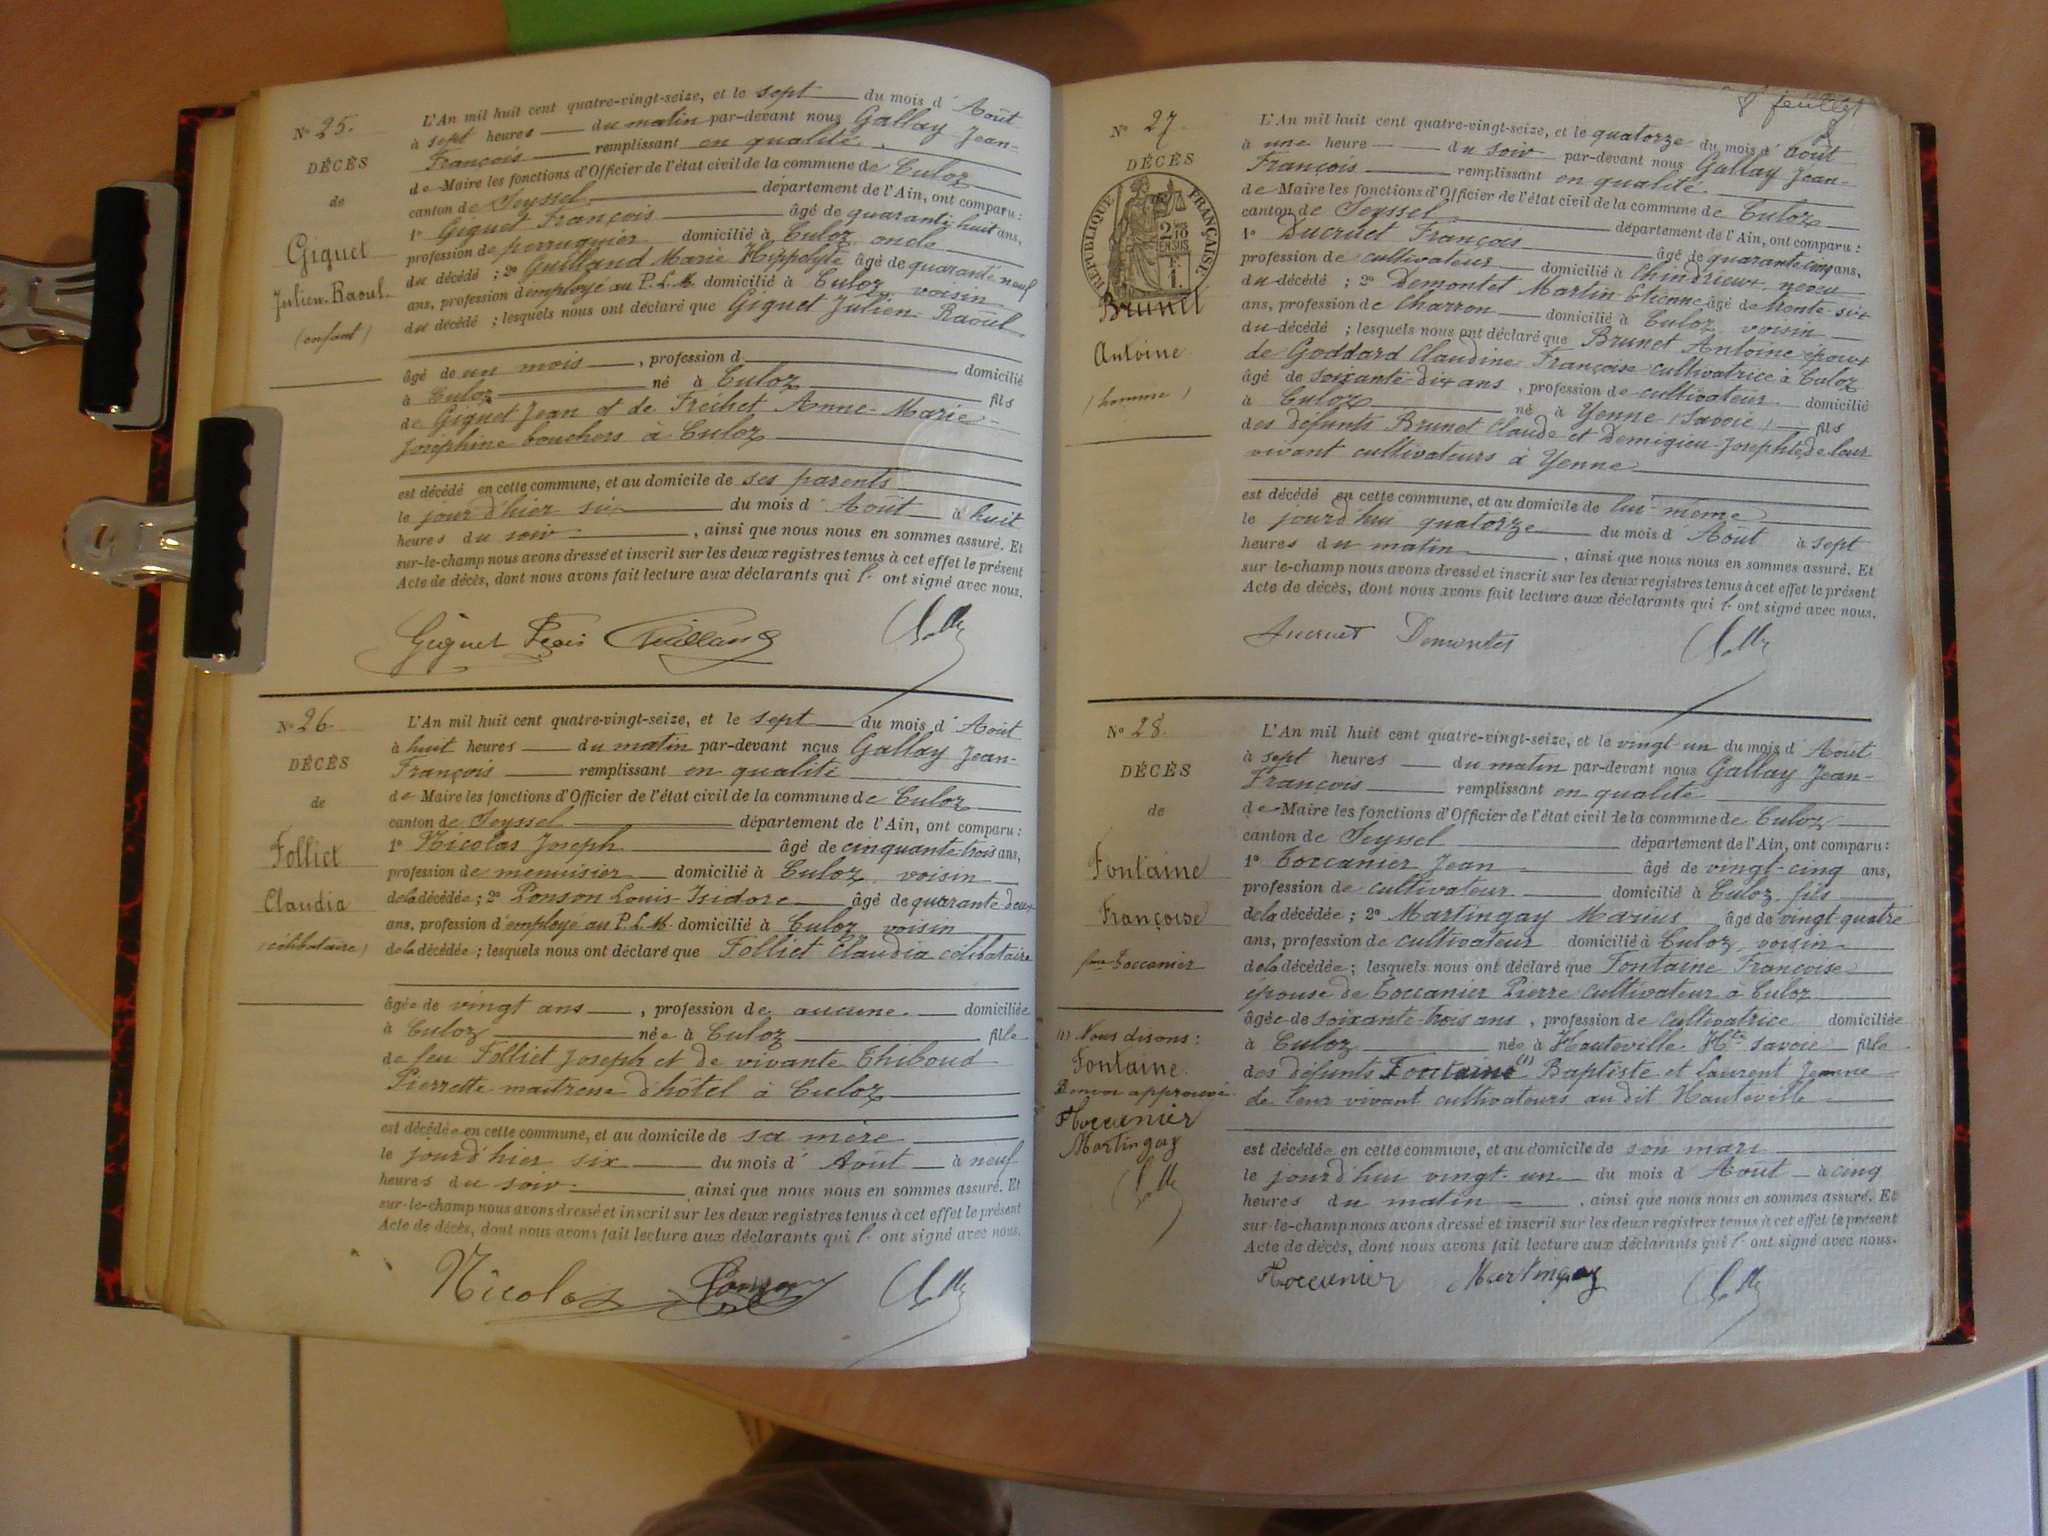 N° 25.
DÉCÈS
de
Giquet
Julien-Raoul.
(enfant)
L'An mil huit cent quatre-vingt-seize, et le sept du mois d'Août
à sept heures du matin par-devant nous Gallay Jean-
François remplissant en qualité
de Maire les fonctions d'Officier de l'état civil de la commune de Culoz
canton de Seyssel département de l'Ain, ont comparu :
1° Giquet François âgé de quarante huit ans,
profession de perruquier domicilié à Culoz, oncle
du décédé ; 2° Guilland Marie Hippolyte âgé de quarante neuf
ans, profession d'employé au P.L.M. domicilié à Culoz voisin
du décédé ; lesquels nous ont déclaré que Giquet Julien-Raoul
âgé de un mois, profession d domicilié
à Culoz né à Culoz fils
de Giquet Jean et de Fréchet Anne-Marie-
Joséphine bouchers à Culoz
est décédé en cette commune, et au domicile de ses parents
le jour d'hier six du mois d'Août à huit
heures du soir, ainsi que nous nous en sommes assuré. Et
sur-le-champ nous avons dressé et inscrit sur les deux registres tenus à cet effet le présent
Acte de décès, dont nous avons fait lecture aux déclarants qui l' ont signé avec nous.
Giquet Fçois Guilland
N° 26.
DÉCÈS
de
Folliet
Claudia
(célibataire)
L'An mil huit cent quatre-vingt-seize, et le sept du mois d'Août
à huit heures du matin par-devant nous Gallay Jean-
François remplissant en qualité
de Maire les fonctions d'Officier de l'état civil de la commune de Culoz
canton de Seyssel département de l'Ain, ont comparu :
1° Nicolas Joseph âgé de cinquante trois ans,
profession de menuisier domicilié à Culoz voisin
de la décédée ; 2° Ponson Louis-Isidore âgé de quarante deux
ans, profession d'employé au P.L.M. domicilié à Culoz voisin
de la décédée ; lesquels nous ont déclaré que Folliet Claudia célibataire
âgée de vingt ans, profession de aucune domiciliée
à Culoz née à Culoz fille
de feu Folliet Joseph et de vivante Thiboud
Pierrette maitresse d'hôtel à Culoz
est décédée en cette commune, et au domicile de sa mère
le jour d'hier six du mois d'Août à neuf
heures du soir ainsi que nous nous en sommes assuré. Et
sur-le-champ nous avons dressé et inscrit sur les deux registres tenus à cet effet le présent
Acte de décès, dont nous avons fait lecture aux déclarants qui l' ont signé avec nous.
Nicolas Ponson
8e feuillet
N° 27.
DÉCÈS
RÉPUBLIQUE FRANÇAISE
Brunet
Antoine
(homme)
L'An mil huit cent quatre-vingt-seize, et le quatorze du mois d'août
à une heure du soir par-devant nous Gallay Jean-
François remplissant en qualité
de Maire les fonctions d'Officier de l'état civil de la commune de Culoz
canton de Seyssel département de l'Ain, ont comparu :
1° Ducruet François âgé de quarante cinq ans,
profession de cultivateur domicilié à Chindrieux neveu
du décédé ; 2° Demontet Martin Etienne âgé de trente-six
ans, profession de charron domicilié à Culoz voisin
du décédé ; lesquels nous ont déclaré que Brunet Antoine époux
de Goddard Claudine Françoise cultivatrice à Culoz
âgé de soixante-dix ans, profession de cultivateur domicilié
à Culoz né à Yenne (Savoie) fils
des défunts Brunet Claude et Demigieu Josephte de leur
vivant cultivateurs à Yenne
est décédé en cette commune, et au domicile de lui-même
le jourd'hui quatorze du mois d'Août à sept
heures du matin, ainsi que nous nous en sommes assuré. Et
sur-le-champ nous avons dressé et inscrit sur les deux registres tenus à cet effet le présent
Acte de décès, dont nous avons fait lecture aux déclarants qui l' ont signé avec nous.
Ducruet Demontet
N° 28.
DÉCÈS
de
Fontaine
Françoise
fme Toccanier
(1) Nous disons :
Fontaine.
Renvoi approuvé
Toccanier
Martingay
L'An mil huit cent quatre-vingt-seize, et le vingt-un du mois d'Août
à sept heures du matin par-devant nous Gallay Jean-
François remplissant en qualité
de Maire les fonctions d'Officier de l'état civil de la commune de Culoz
canton de Seyssel département de l'Ain, ont comparu :
1° Toccanier Jean âgé de vingt-cinq ans,
profession de cultivateur domicilié à Culoz fils
de la décédée ; 2° Martingay Marius âgé de vingt-quatre
ans, profession de cultivateur domicilié à Culoz voisin
de la décédée ; lesquels nous ont déclaré que Fontaine Françoise
épouse de Toccanier Pierre cultivateur à Culoz
âgée de soixante-trois ans, profession de cultivatrice domiciliée
à Culoz née à Hauteville Hte Savoie fille
des défunts Fontaine (1) Baptiste et Laurent Jeanne
de leur vivant cultivateurs au dit Hauteville
est décédée en cette commune, et au domicile de son mari
le jourd'hui vingt-un du mois d'Août à cinq
heures du matin, ainsi que nous nous en sommes assuré. Et
sur-le-champ nous avons dressé et inscrit sur les deux registres tenus à cet effet le présent
Acte de décès, dont nous avons fait lecture aux déclarants qui l' ont signé avec nous.
Toccanier Martingay